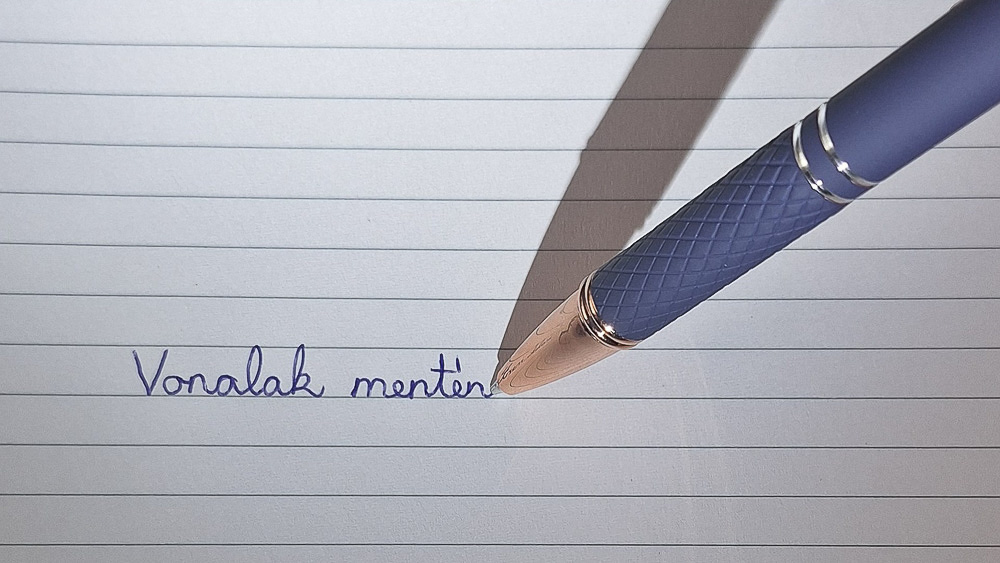 Vonalak mentén